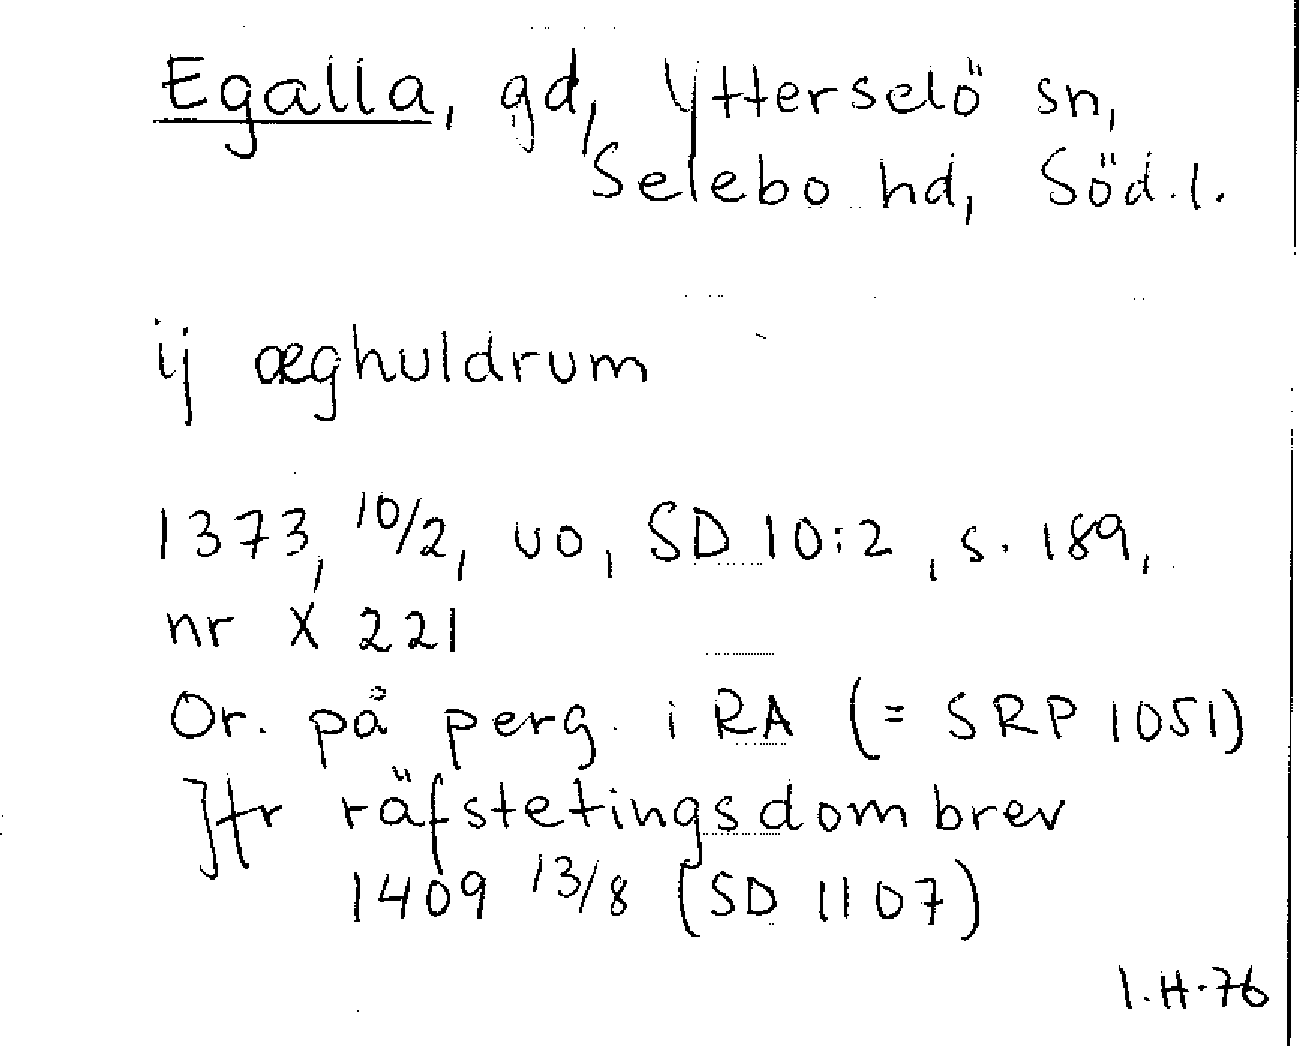 Egalla, gd, Ytterselö sn,
Selebo hd, Söd. l.
ij æghuldrum
1373, 10/2, uo, SD 10:2, s. 189,
nr X 221
Or. på perg. i RA (= SRP 1051)
Jfr räfstetingsdombrev
1409 13/8 (SD 1107)
I.H.76